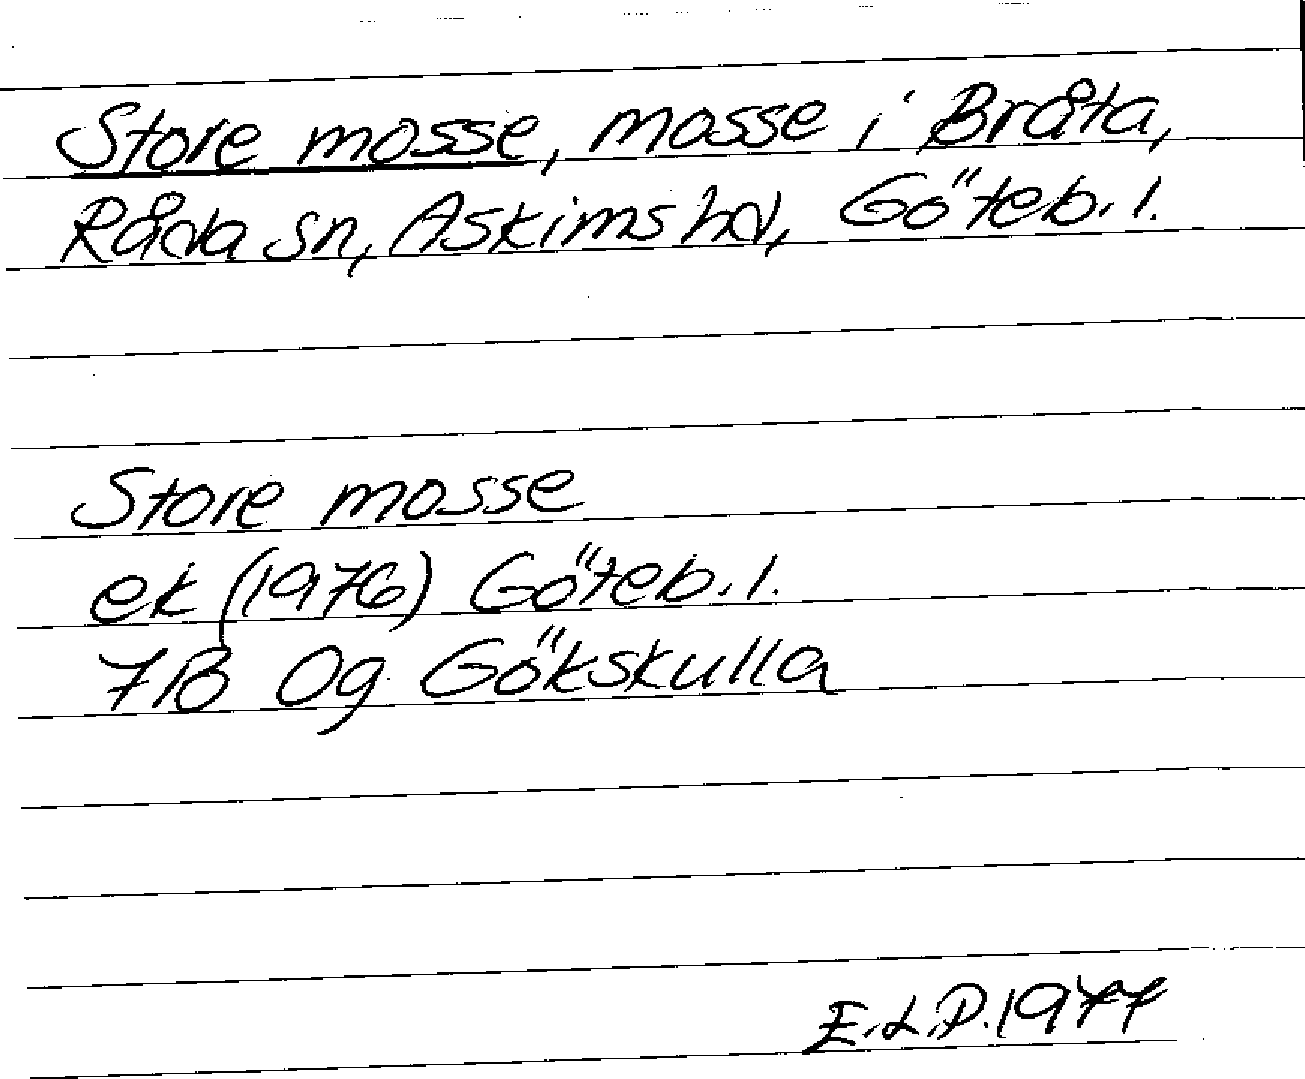 Store mosse, mosse i Bråta,
Råda sn, Askims hd, Göteb. l.
Store mosse
ek (1976) Göteb. l.
7B 0g Gökskulla
E.L.P. 1977